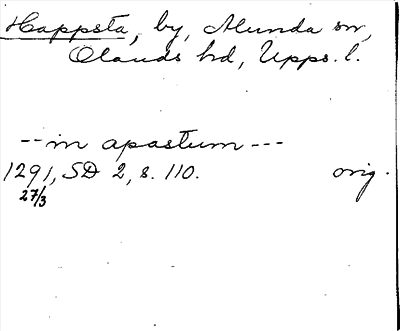 Happsta, by, Alunda sn,
Olands hd, Upps. l.
--in apastum---
1291, SD 2, s. 110. orig.
27/3